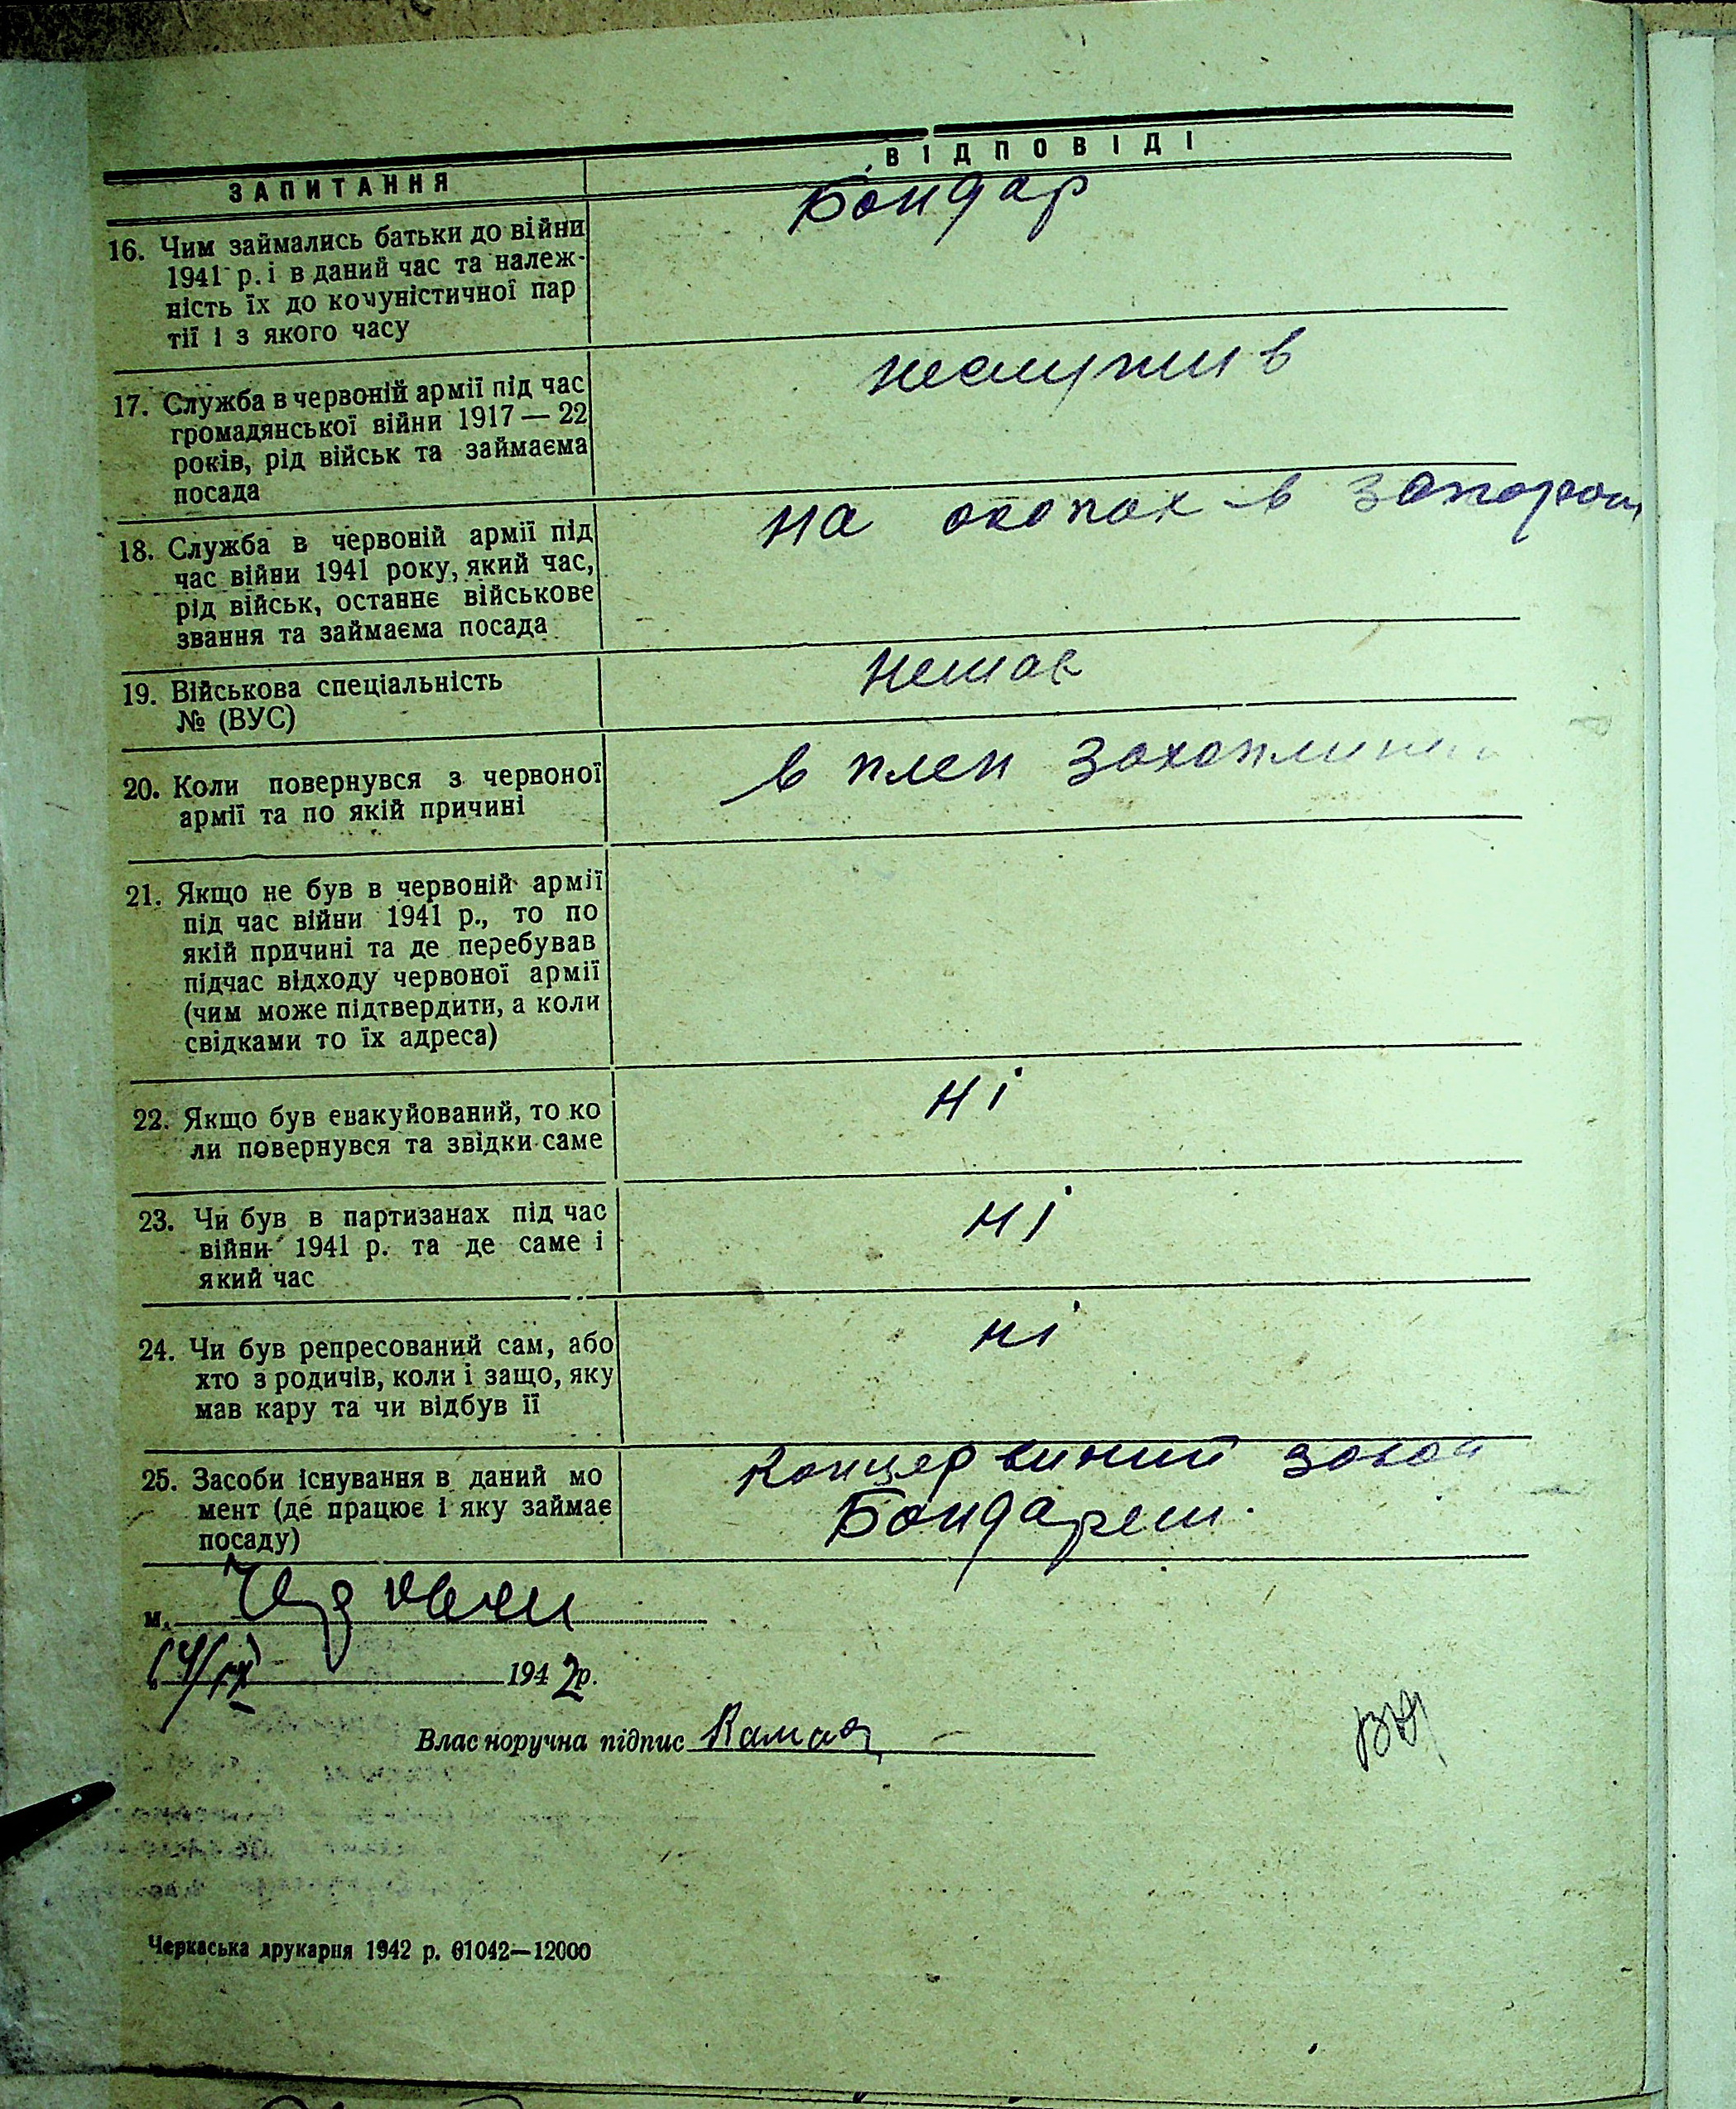 ЗАПИТАННЯ
ВІДПОВІДІ
16. Чим займались батьки до війни
1941 р. і в даний час та належ-
ність їх до комуністичної пар
тії і з якого часу
Бондар
17. Служба в червоній армії під час
громадянської війни 1917 — 22
років, рід військ та займаєма
посада
неслужив
18. Служба в червоній армії під
час війни 1941 року, який час,
рід військ, останнє військове
звання та займаєма посада
на окопах в
19. Військова спеціальність
№ (ВУС)
немає
20. Коли повернувся з червоної
армії та по якій причині
в плен
21. Якщо не був в червоній армії
під час війни 1941 р., то по
якій причині та де перебував
підчас відходу червоної армії
(чим може підтвердити, а коли
свідками то їх адреса)
22. Якщо був евакуйований, то ко
ли повернувся та звідки саме
ні
23. Чи був в партизанах під час
війни 1941 р. та де саме і
який час
ні
24. Чи був репресований сам, або
хто з родичів, коли і защо, яку
мав кару та чи відбув її
ні
25. Засоби існування в даний мо
мент (де працює і яку займає
посаду)
концервиний завод
Бондарем.
м.
194 2 р.
Власноручна підпис
Черкаська друкарня 1942 р. 01042—12000